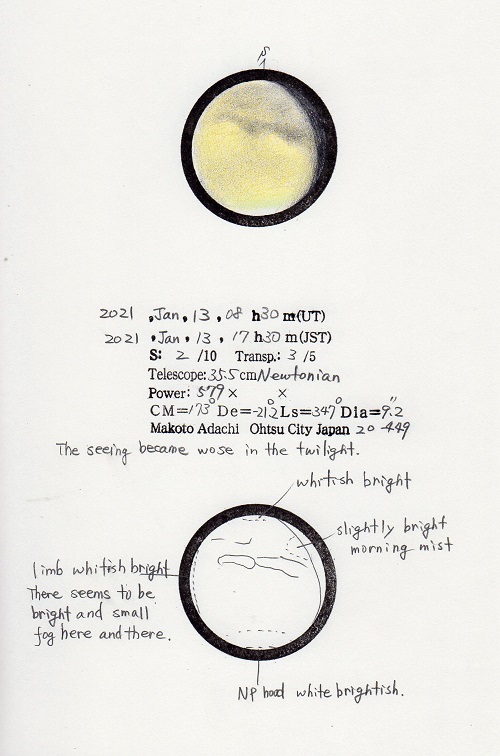 S
2021 ,Jan, 13, 08 h30 m(UT)
2021 ,Jan, 13, 17 h30 m(JST)
S: 2 /10 Transp.: 3 /5
Telescope: 355cm Newtonian
Power: 579 × ×
CM=173° De=-21.2° Ls=347° Dia=9.2"
Makoto Adachi Ohtsu City Japan 20-449
The seeing became wose in the twilight.
whitish bright
slightly bright
morning mist
limb whitish bright
There seems to be
bright and small
fog here and there.
NP hood white brightish.